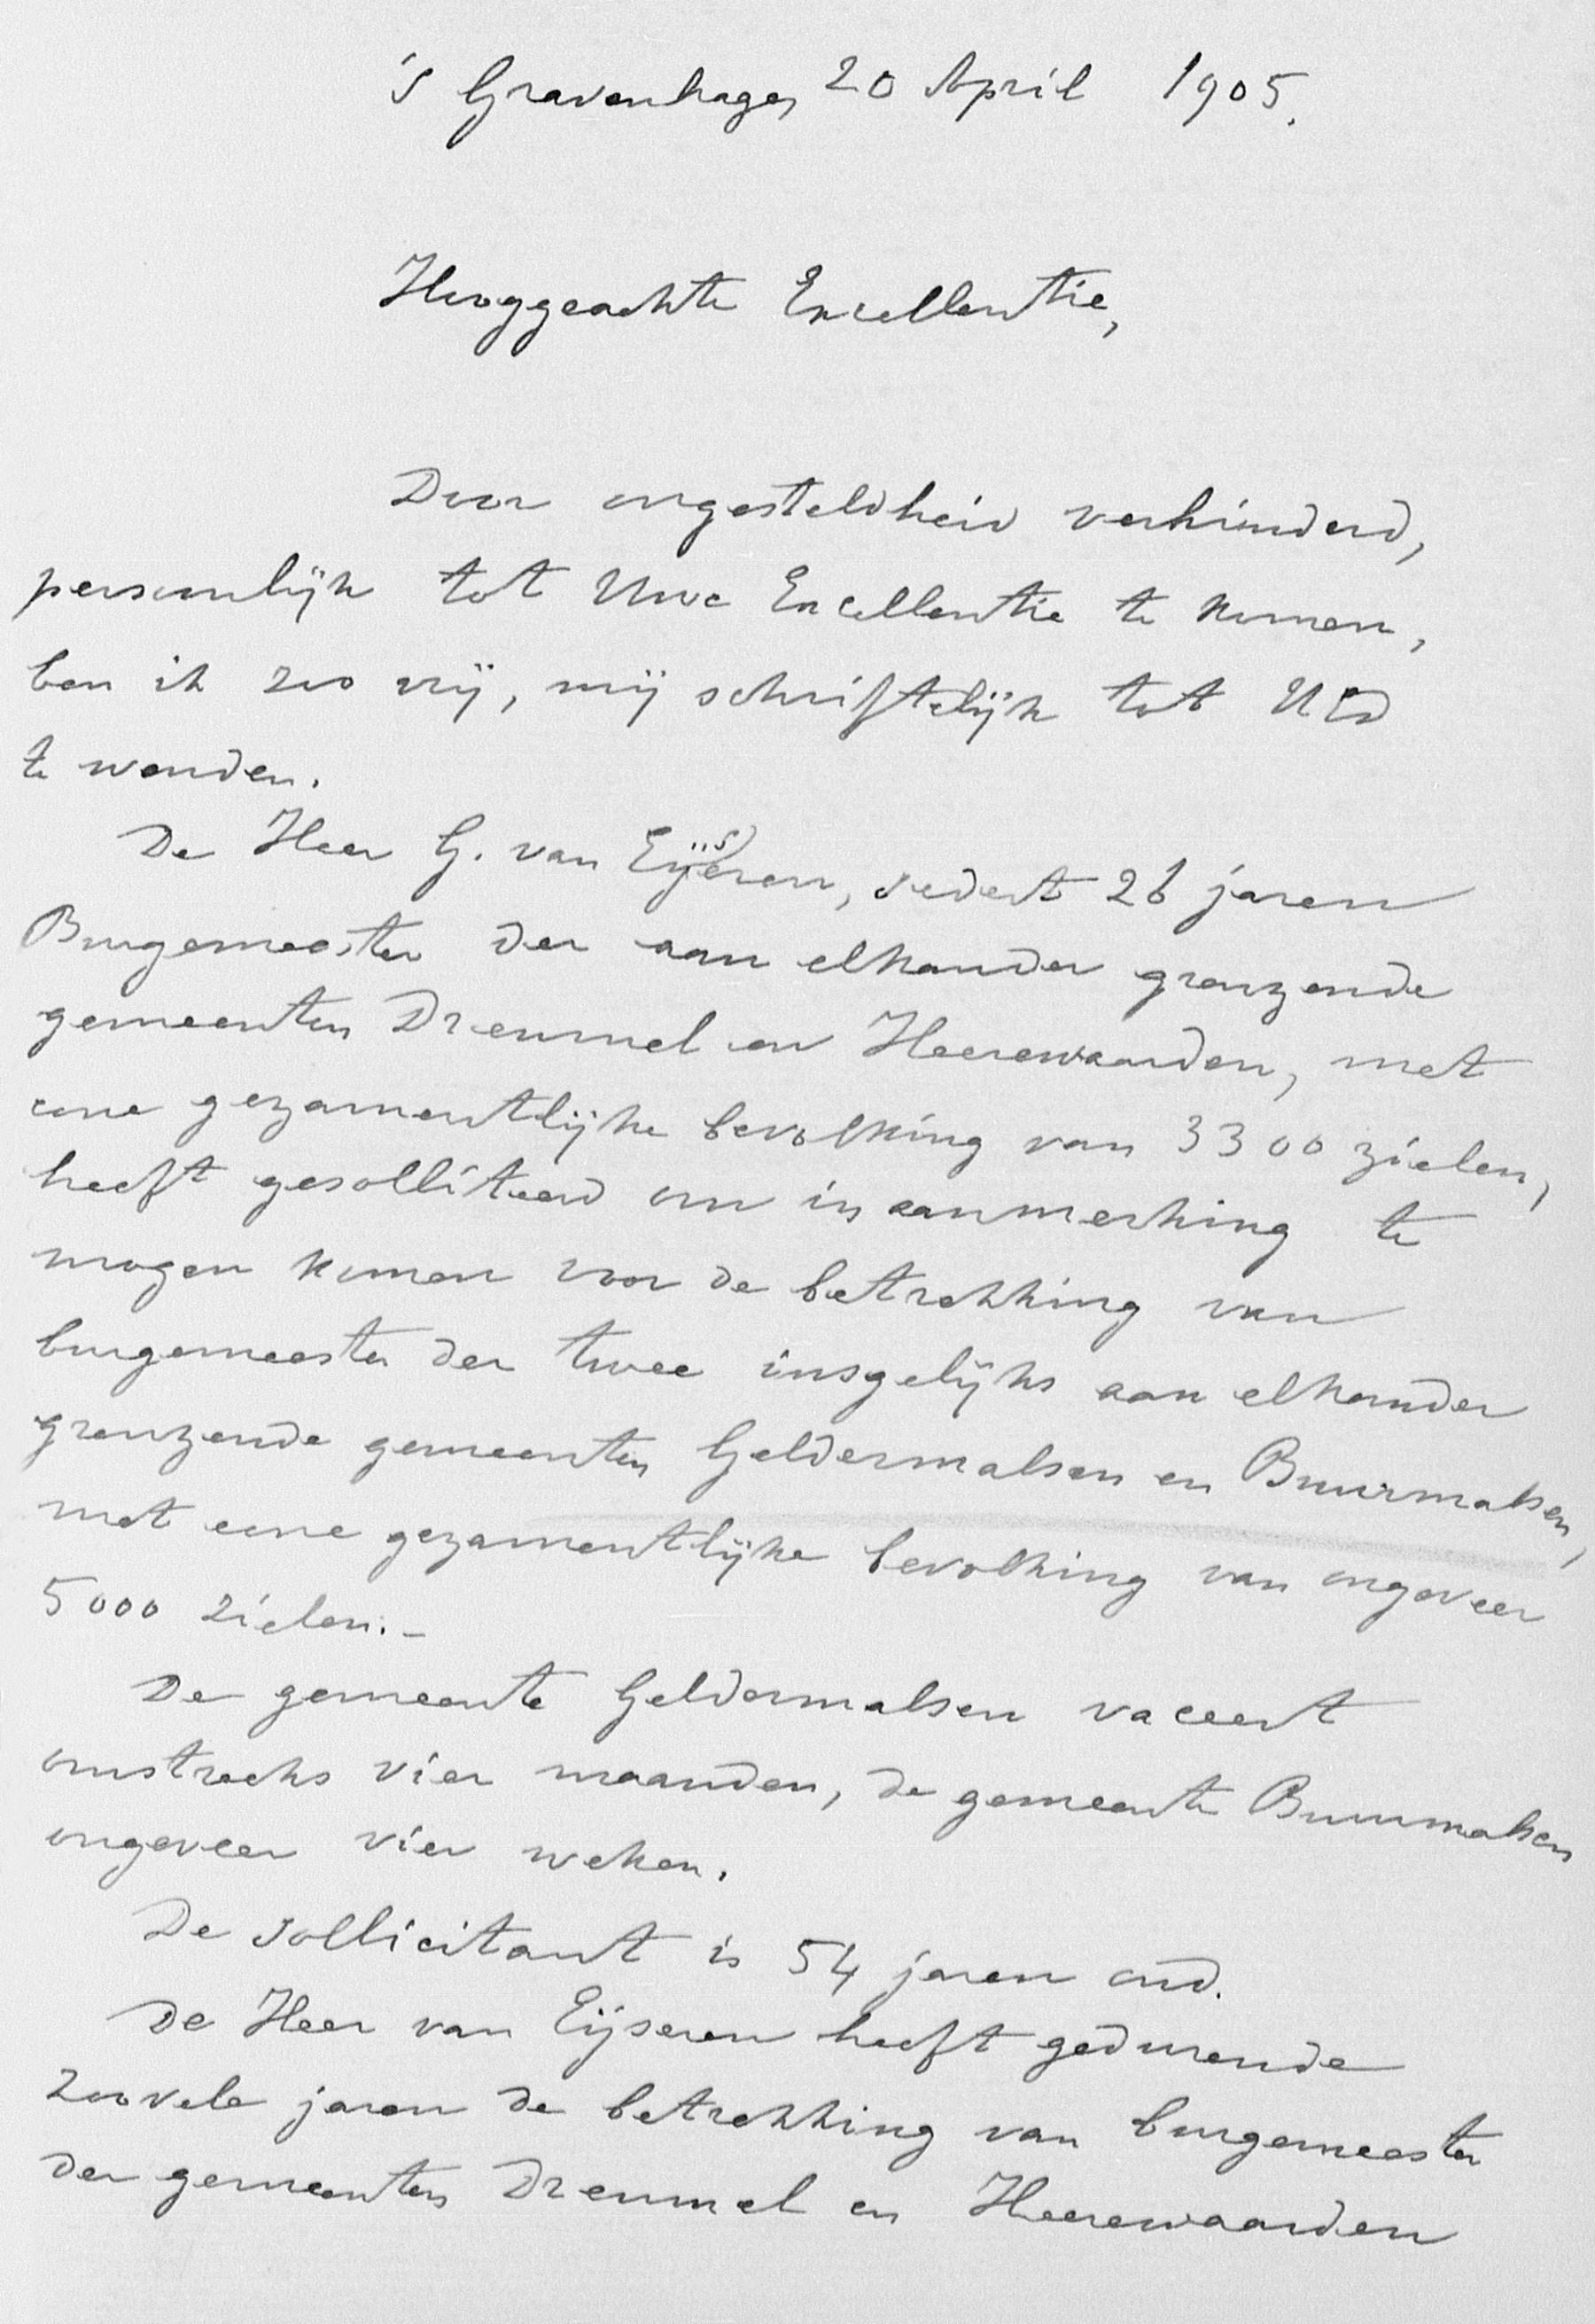 's Gravenhage, 20 April 1905.
Hooggeachte Excellentie,
Door ongesteldheid verhinderd,
persoonlijk tot Uwe Excellentie te komen,
ben ik zoo vrij, mij schriftelijk tot UEd
te wenden.
De Heer G. van Eijseren, sedert 26 jaren
Burgemeester der aan elkander grenzende
gemeenten Dreumel en Heerewaarden, met
eene gezamentlijke bevolking van 3300 zielen,
heeft gesolliteerd om in aanmerking te
mogen komen voor de betrekking van
burgemeester der twee insgelijks aan elkander
grenzende gemeenten Geldermalsen en Buurmalsen,
met eene gezamentlijke bevolking van ongeveer
5000 zielen.-
De gemeente Geldermalsen vaceert
omstreeks vier maanden, de gemeente Buurmalsen
ongeveer vier weken.
De sollicitant is 54 jaren oud.
De Heer van Eijseren heeft gedurende
zoovele jaren de betrekking van burgemeester
der gemeenten Dreumel en Heerewaarden